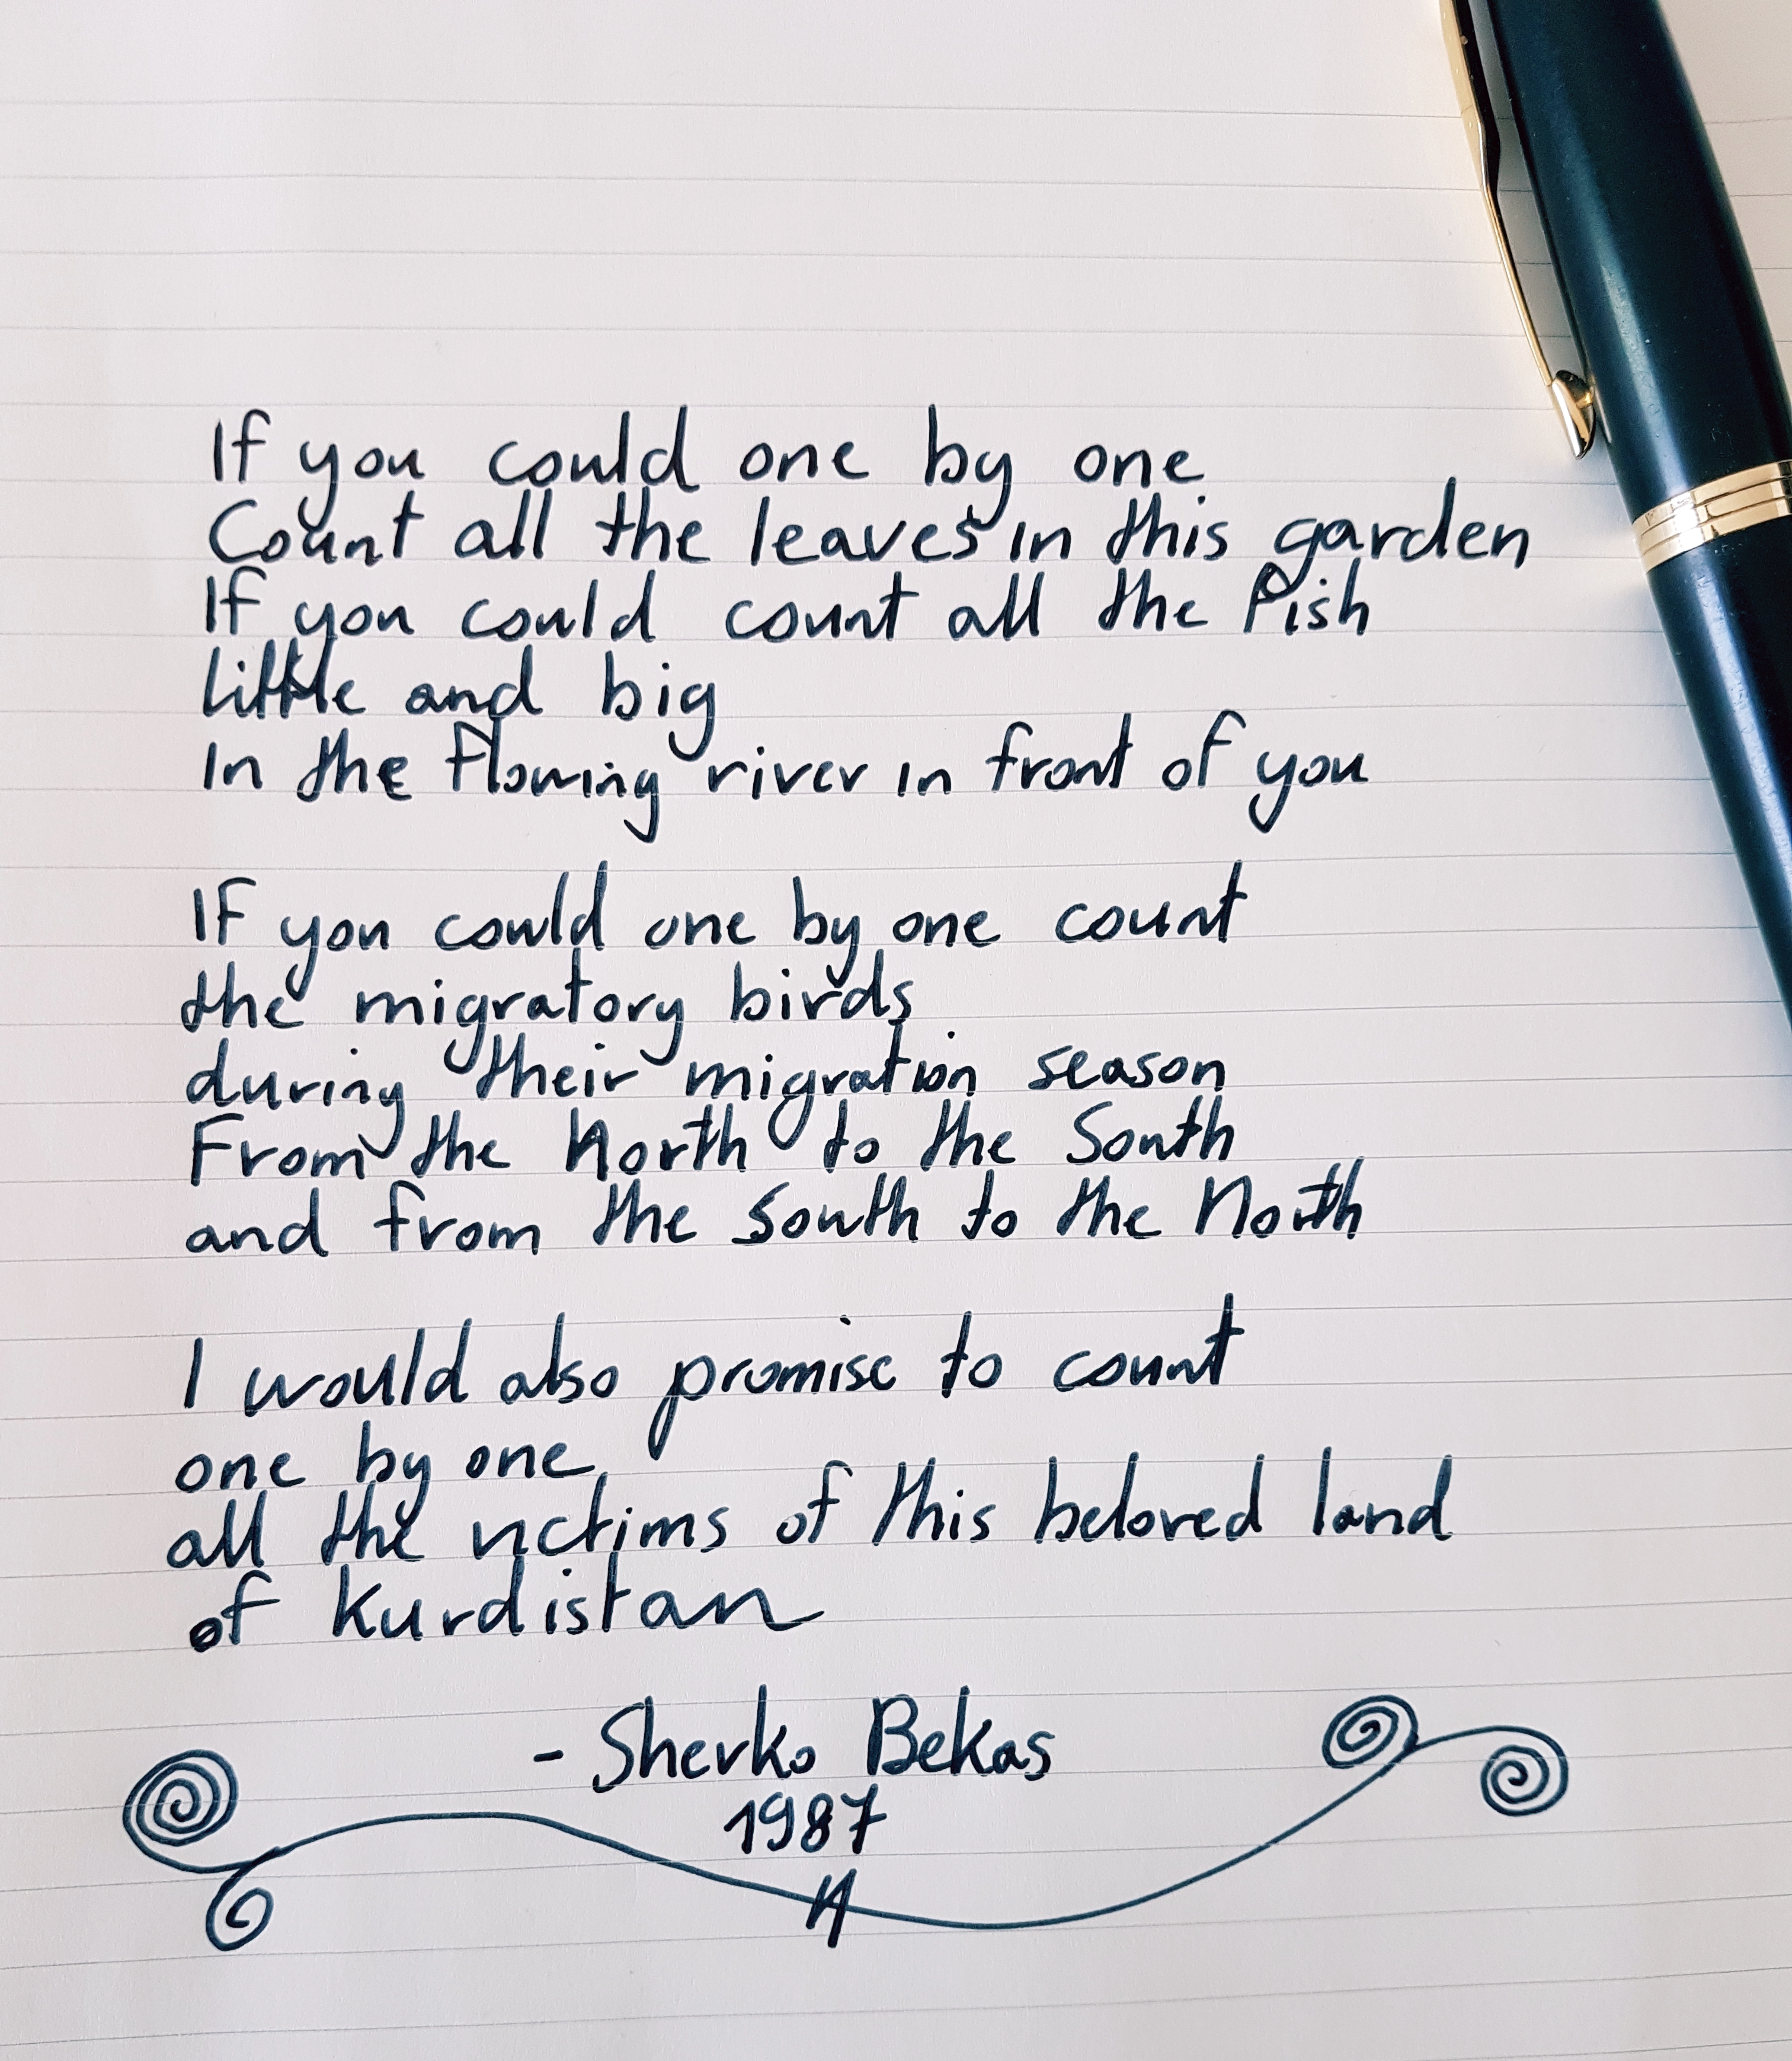 If you could one by one
Count all the leaves in this garden
If you could count all the Fish
little and big
In the flowing river in front of you
If you could one by one count
the migratory birds
during their migration season
From the North to the South
and from the South to the North
I would also promise to count
one by one,
all the victims of this beloved land
of Kurdistan
- Sherko Bekas
1987